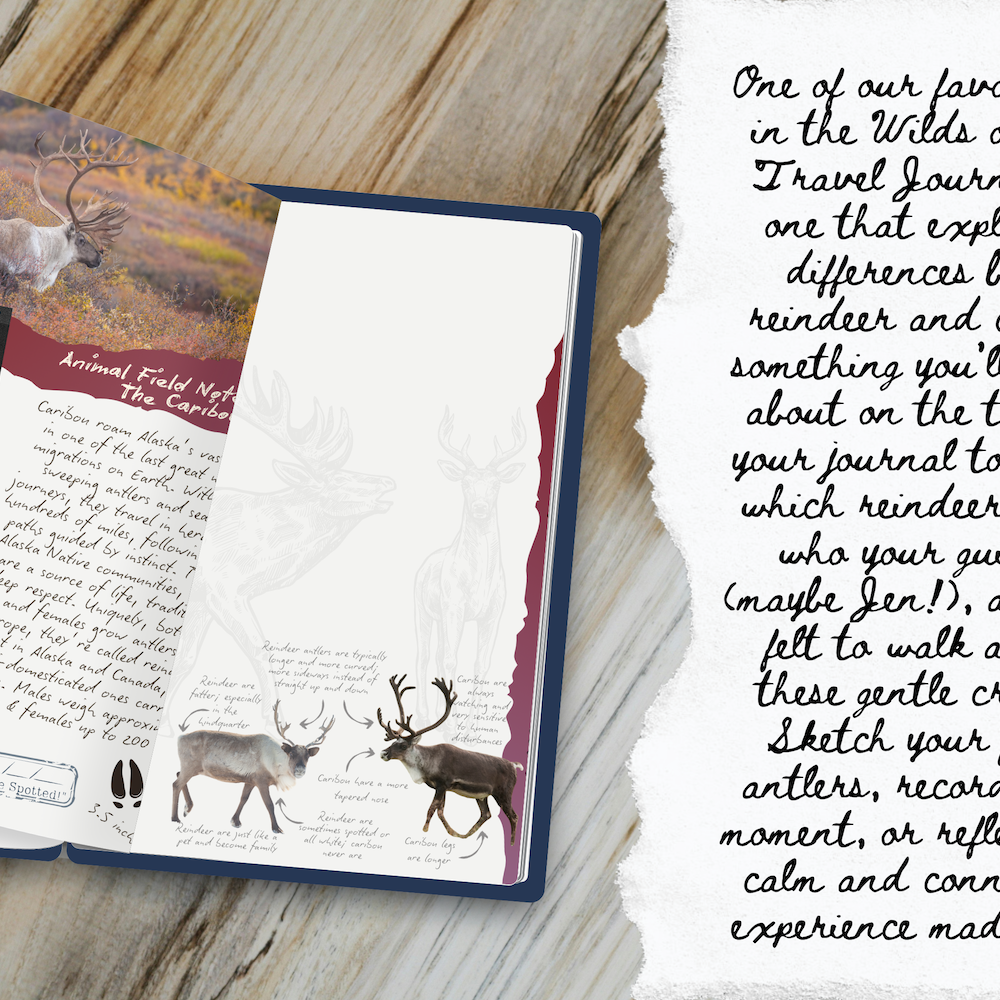 Animal Field Note
The Caribo
Caribou roam Alaska's vas
in one of the last great
migrations on Earth. With
sweeping antlers and sea
journeys, they travel in her
hundreds of miles, followin
paths guided by instinct. T
Alaska Native communities,
are a source of life, tradi
eep respect. Uniquely, bot
and females grow antlers
rope, they're called rein
t in Alaska and Canada,
-domesticated ones carr
. Males weigh approxi
& females up to 200
e Spotted!"
3.5 inch
Reindeer antlers are typically
longer and more curved;
more sideways instead of
straight up and down
Reindeer are
fatter; especially
in the
hindquarter
Caribou are
always
watching and
very sensitive
to human
disturbances
Caribou have a more
tapered nose
Reindeer are
sometimes spotted or
all white; caribou
never are
Reindeer are just like a
pet and become family
Caribou legs
are longer
One of our favo
in the Wilds o
Travel Journ
one that expl
differences b
reindeer and
something you'll
about on the t
your journal to
which reindeer
who your gu
(maybe Jen!), a
felt to walk a
these gentle cr
Sketch your
antlers, record
moment, or refle
calm and conn
experience mad